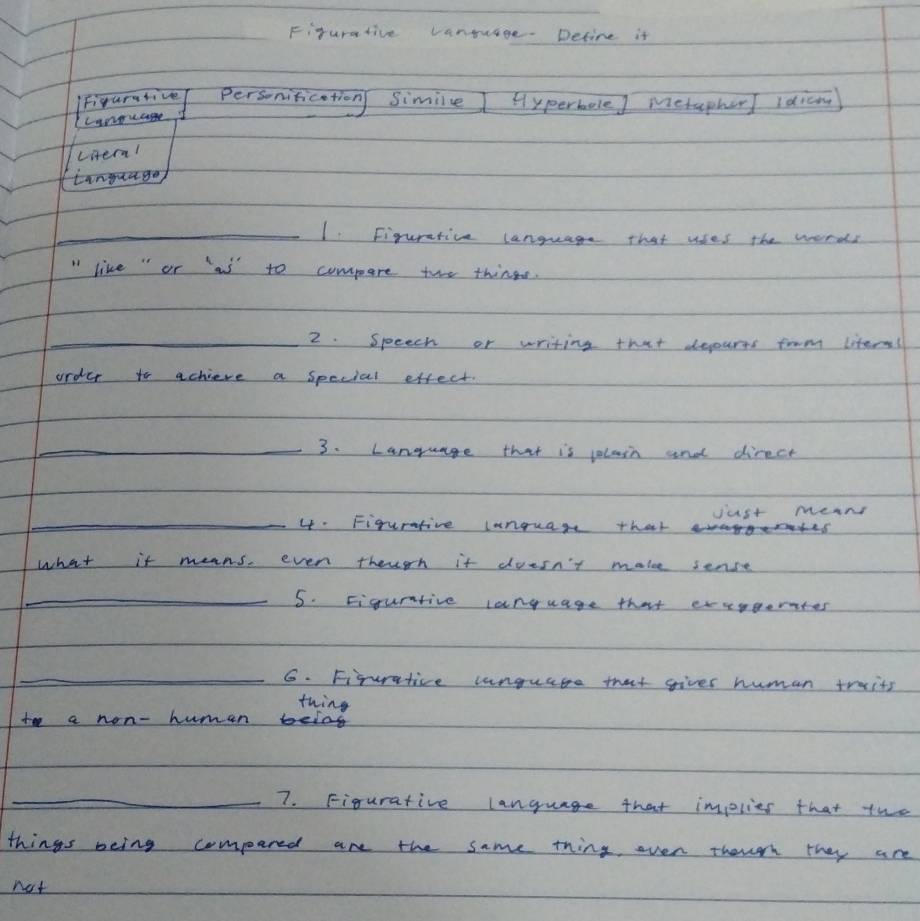 Figurative Language - Define it
Figurative Personification Simile Hyperbole Metaphor Idiom
Language
Literal
Language
1. Figurative language that uses the words
"like" or "as" to compare two things.
2. Speech or writing that departs from literal
order to achieve a special effect.
3. Language that is plain and direct
just means
4. Figurative language that exaggerates
what it means, even though it doesn't make sense
5. Figurative language that exaggerates
6. Figurative language that gives human traits
thing
to a non-human being
7. Figurative language that implies that two
things being compared are the same thing, even though they are
not